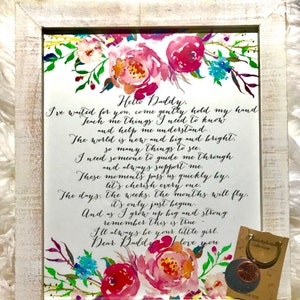 Hello Daddy,
I've waited for you, come gently, hold my hand
Teach me things I need to know
and help me understand.
The world is new and big and bright,
so many things to see.
I need someone to guide me through
and always support me.
These moments pass us quickly by,
let's cherish every one.
The days, the weeks, the months will fly,
it's only just begun.
And as I grow up big and strong
remember this is true.
I'll always be your little girl.
Dear Daddy, I love you